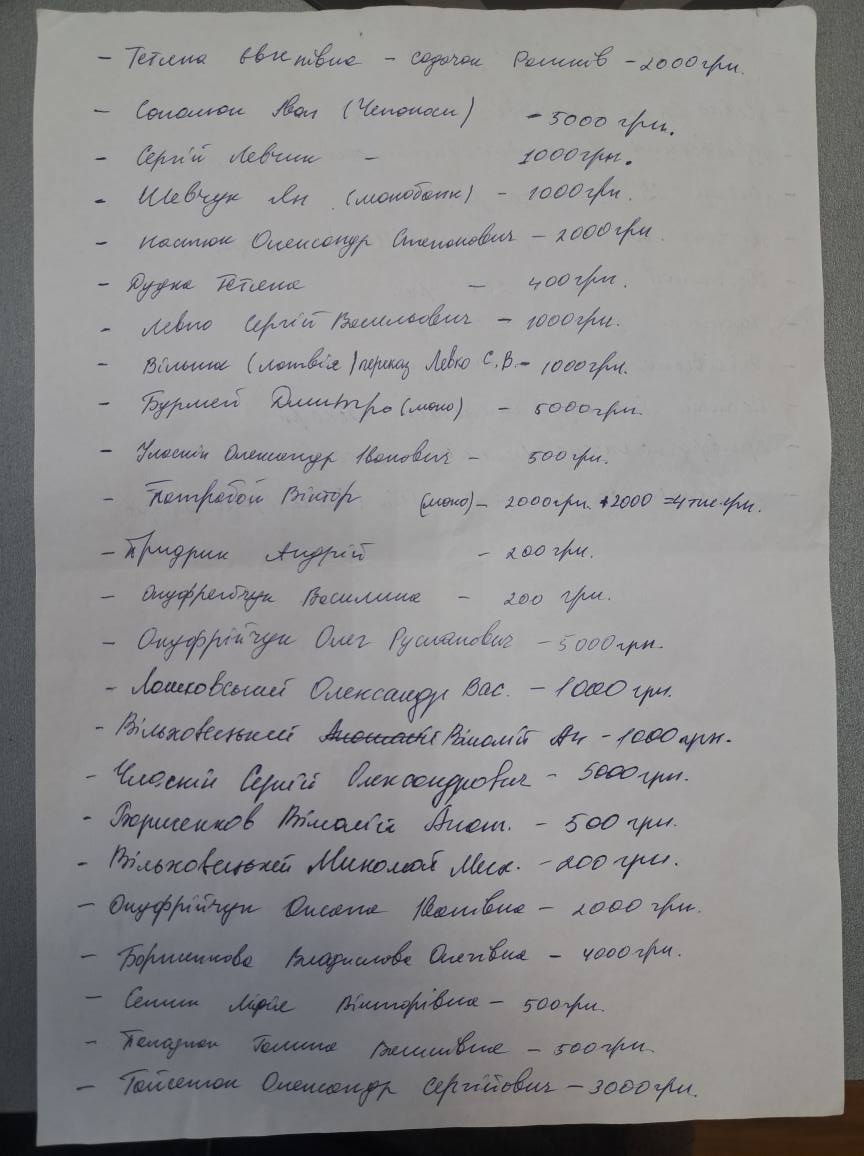 - Тетяна - садочок Ратнів - 2000 грн.
- Соломон Іван (Чепоноси) - 5000 грн.
- Сергій Левчик - 1000 грн.
- Шевчук Ян (монобанк) - 1000 грн.
- Насток Олександр Степанович - 2000 грн
- Дудка Тетяна - 400 грн.
- Левко Сергій Васильович - 1000 грн.
- (латвія) переказ Левко С.В. - 1000 грн.
- Бурмей Дмитро (моно) - 5000 грн.
- Уласкін Олександр Іванович - 500 грн.
- Віктор (моно) - 2000 грн. + 2000 = 4 тис. грн.
- Придрик Андрій - 200 грн.
- Онуфрейчук Василина - 200 грн.
- Онуфрійчук Олег Русланович - 5000 грн.
- Лошковський Олександр Вас. - 1000 грн.
- Вільховецький Віталій Ан - 1000 грн.
- Уласкін Сергій Олександрович - 5000 грн.
- Борисенков Віталій Анат. - 500 грн.
- Вільховецький Миколай Мих. - 200 грн.
- Онуфрійчук Оксана Іванівна - 2000 грн.
- Борисенкова Владислава Олегівна - 4000 грн.
- Лідія Вікторівна - 500 грн.
- Паладюк Галина Василівна - 500 грн.
- Олександр Сергійович - 3000 грн.